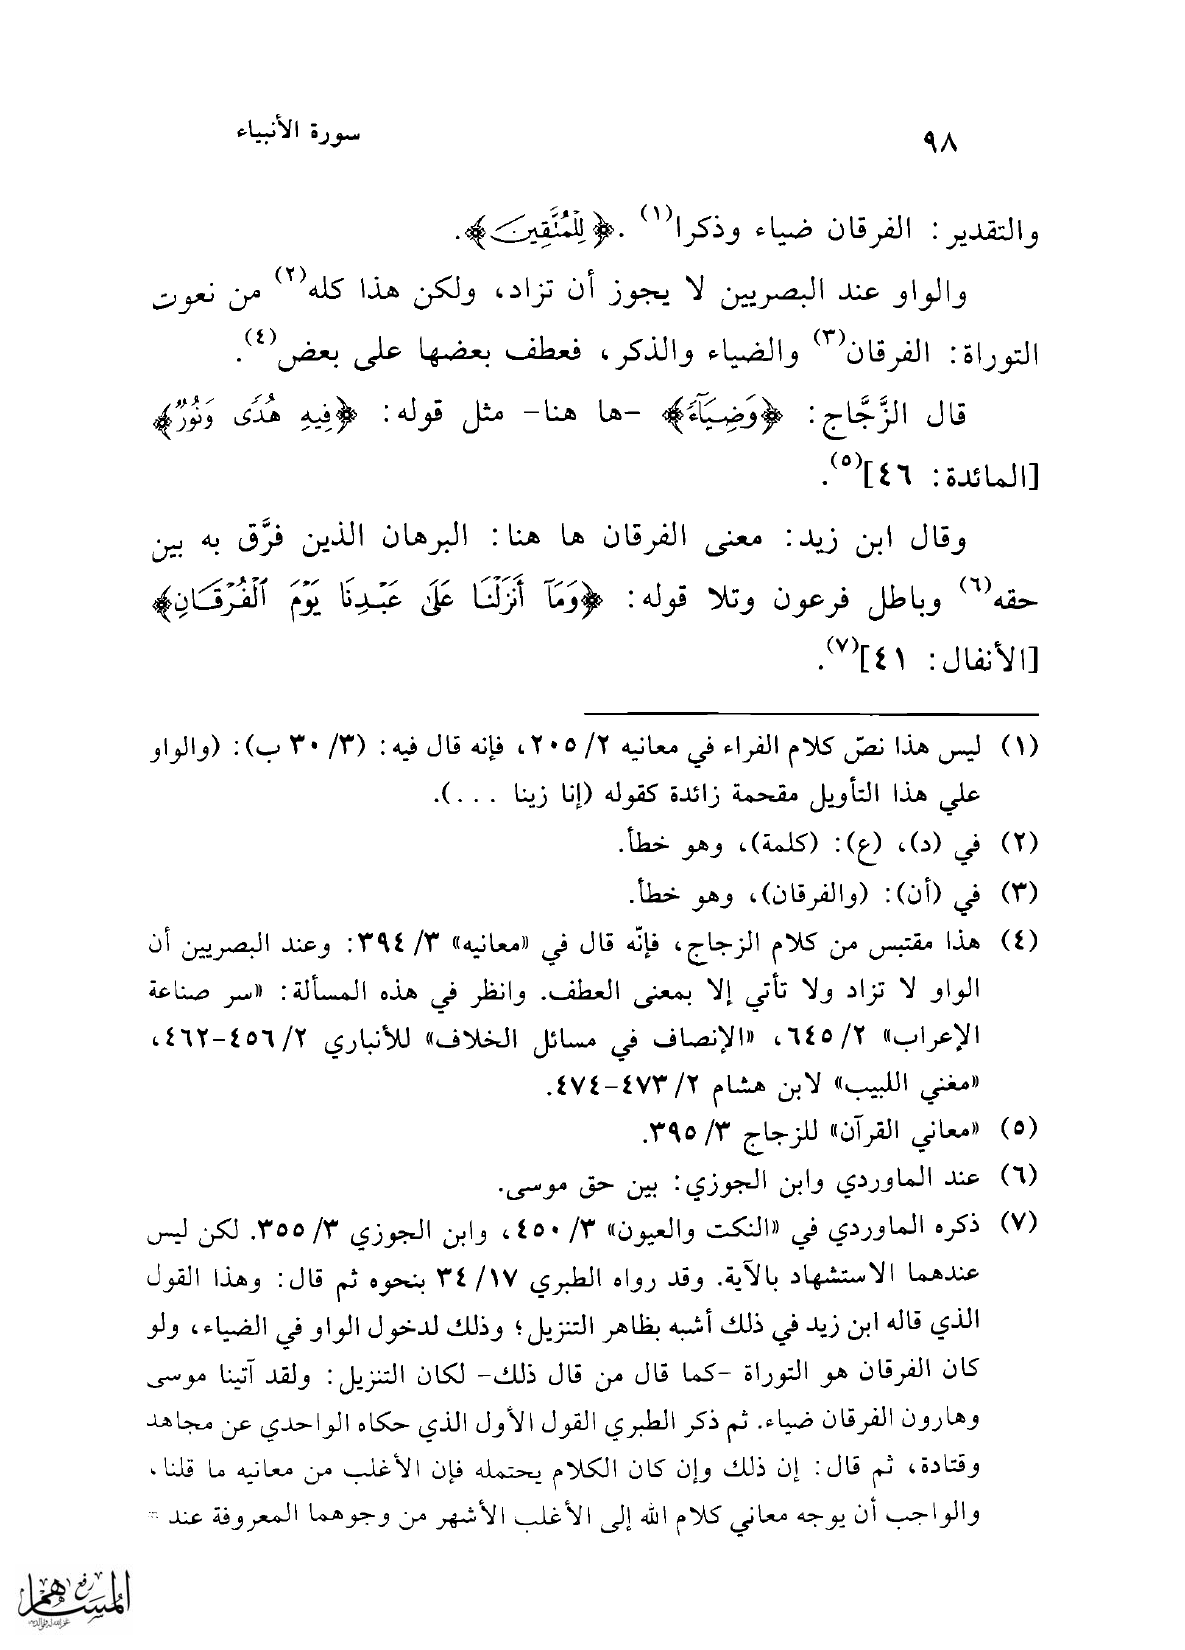 ٩٨
سورة الأنبياء
والتقدير: الفرقان ضياء وذكرا(١) .﴿لِلْمُتَّقِينَ﴾.
والواو عند البصريين لا يجوز أن تزاد، ولكن هذا كله(٢) من نعوت
التوراة: الفرقان(٣) والضياء والذكر، فعطف بعضها على بعض(٤).
قال الزَّجَّاج: ﴿وَضِيَآءً﴾ -ها هنا- مثل قوله: ﴿فِيهِ هُدًى وَنُورٌ﴾
[المائدة: ٤٦](٥).
وقال ابن زيد: معنى الفرقان ها هنا: البرهان الذين فرَّق به بين
حقه(٦) وباطل فرعون وتلا قوله: ﴿وَمَآ أَنزَلْنَا عَلَىٰ عَبْدِنَا يَوْمَ ٱلْفُرْقَانِ﴾
[الأنفال: ٤١](٧).
(١) ليس هذا نصّ كلام الفراء في معانيه ٢/ ٢٠٥، فإنه قال فيه: (٣/ ٣٠ ب): (والواو
علي هذا التأويل مقحمة زائدة كقوله (إنا زينا ...).
(٢) في (د)، (ع): (كلمة)، وهو خطأ.
(٣) في (أن): (والفرقان)، وهو خطأ.
(٤) هذا مقتبس من كلام الزجاج، فإنّه قال في «معانيه» ٣/ ٣٩٤: وعند البصريين أن
الواو لا تزاد ولا تأتي إلا بمعنى العطف. وانظر في هذه المسألة: «سر صناعة
الإعراب» ٢/ ٦٤٥، «الإنصاف في مسائل الخلاف» للأنباري ٢/ ٤٥٦-٤٦٢،
«مغني اللبيب» لابن هشام ٢/ ٤٧٣-٤٧٤.
(٥) «معاني القرآن» للزجاج ٣/ ٣٩٥.
(٦) عند الماوردي وابن الجوزي: بين حق موسى.
(٧) ذكره الماوردي في «النكت والعيون» ٣/ ٤٥٠، وابن الجوزي ٣/ ٣٥٥. لكن ليس
عندهما الاستشهاد بالآية. وقد رواه الطبري ١٧/ ٣٤ بنحوه ثم قال: وهذا القول
الذي قاله ابن زيد في ذلك أشبه بظاهر التنزيل؛ وذلك لدخول الواو في الضياء، ولو
كان الفرقان هو التوراة -كما قال من قال ذلك- لكان التنزيل: ولقد آتينا موسى
وهارون الفرقان ضياء. ثم ذكر الطبري القول الأول الذي حكاه الواحدي عن مجاهد
وقتادة، ثم قال: إن ذلك وإن كان الكلام يحتمله فإن الأغلب من معانيه ما قلنا،
والواجب أن يوجه معاني كلام الله إلى الأغلب الأشهر من وجوهما المعروفة عند =